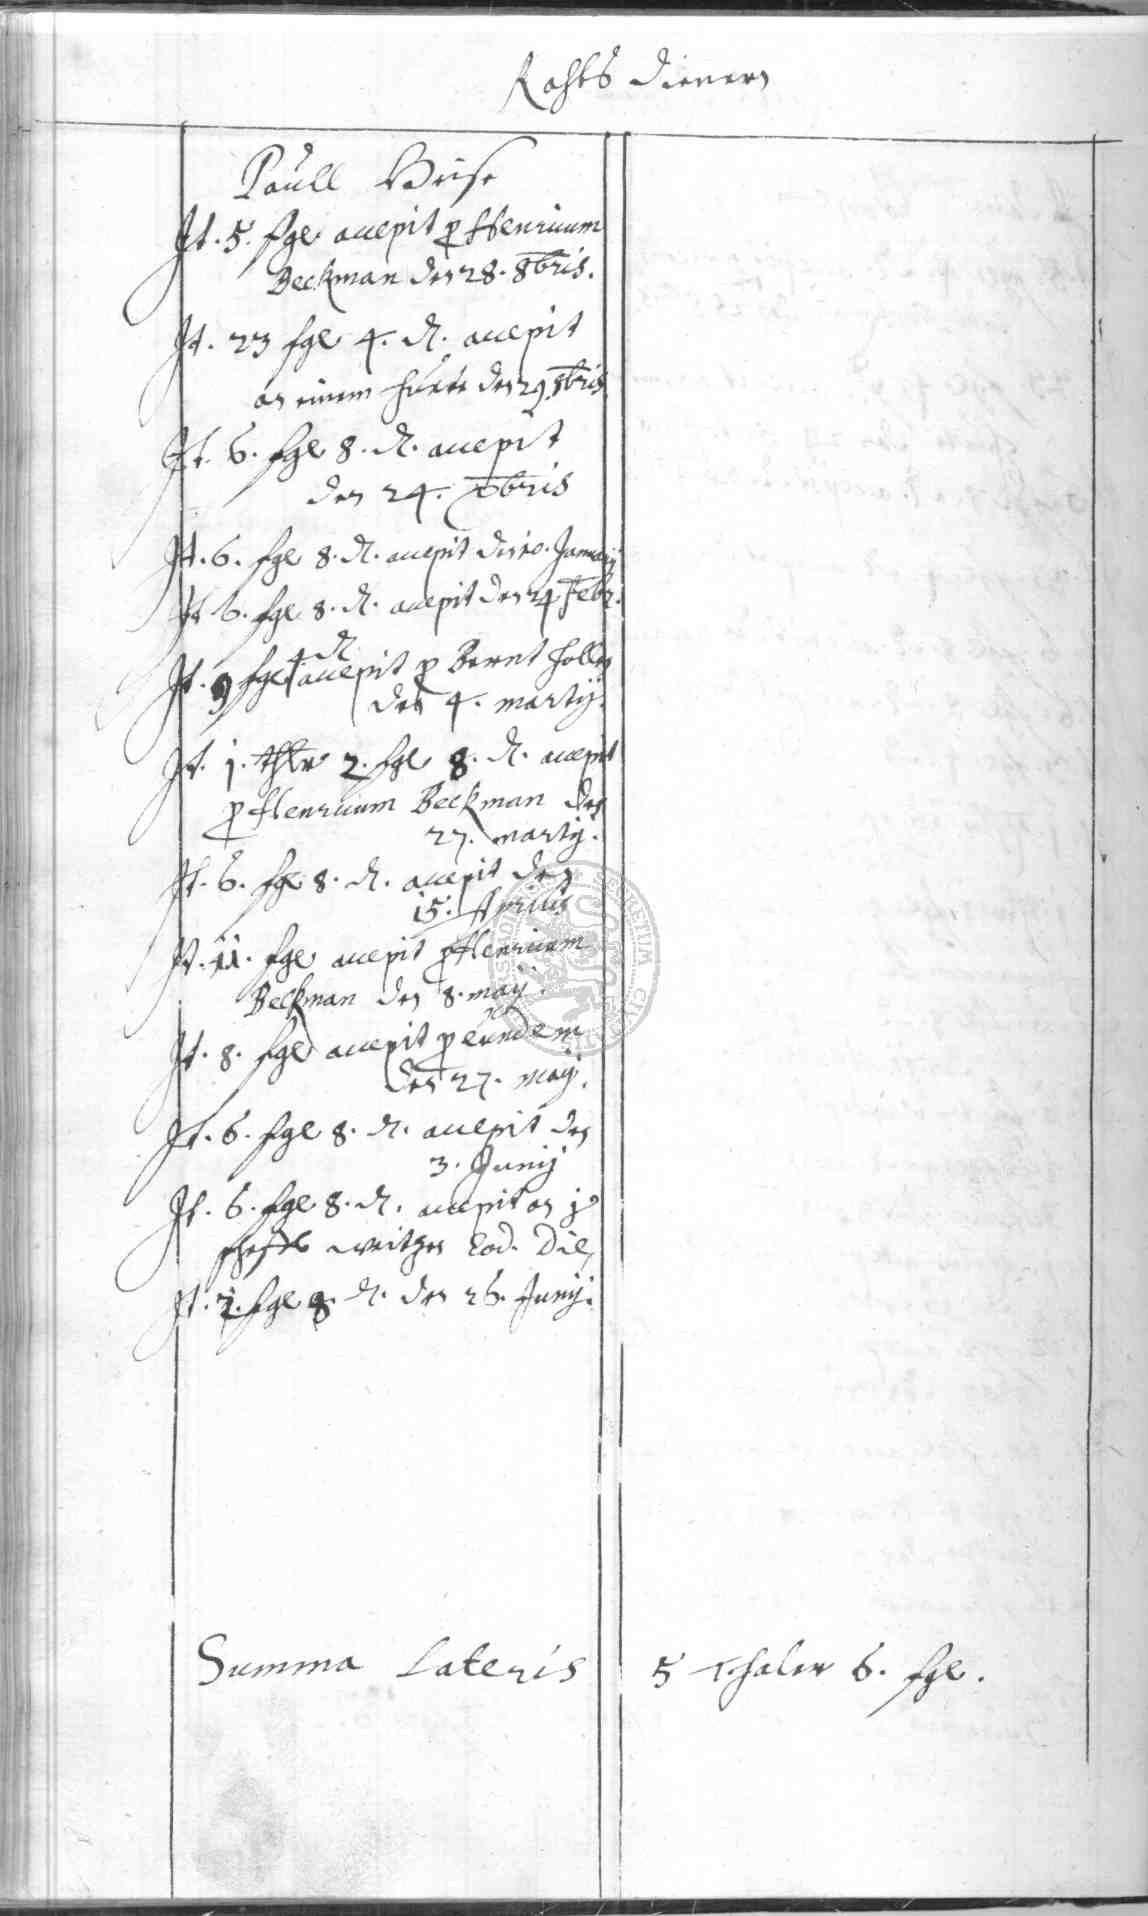 Rahts Dienern
Paull Weise
It. 5. sgl accepit p Henricum
Beckman den 28. 8bris.
It. 23 sgl 4. d. accepit
an einem den 29. 8bris
It. 6. sgl 8. d. accepit
den 24. xbris
It. 6. sgl 8. d. accepit den 10. January
It 6. sgl 8. d. accepit den 24 Febr.
It. 9 sgl 4 d accepit p Bernt
den 4. martij.
It. 1. thlr 2. sgl 8. d. accepit
p Henricum Beckman den
27. martij.
It. 6. sgl 8. d. accepit den
15. Aprilis
It. 11. sgl accepit p Henricum
Beckman den 8. maij.
It. 8. sgl accepit p eundem
den 27. maij.
It. 6. sgl 8. d. accepit den
3. Junij
It. 6. sgl 8. d. accepit an
weitzen Eod. Die
It. 7. sgl 8. d. den 26. Junij.
Summa Lateris 5 Thaler 6. sgl.